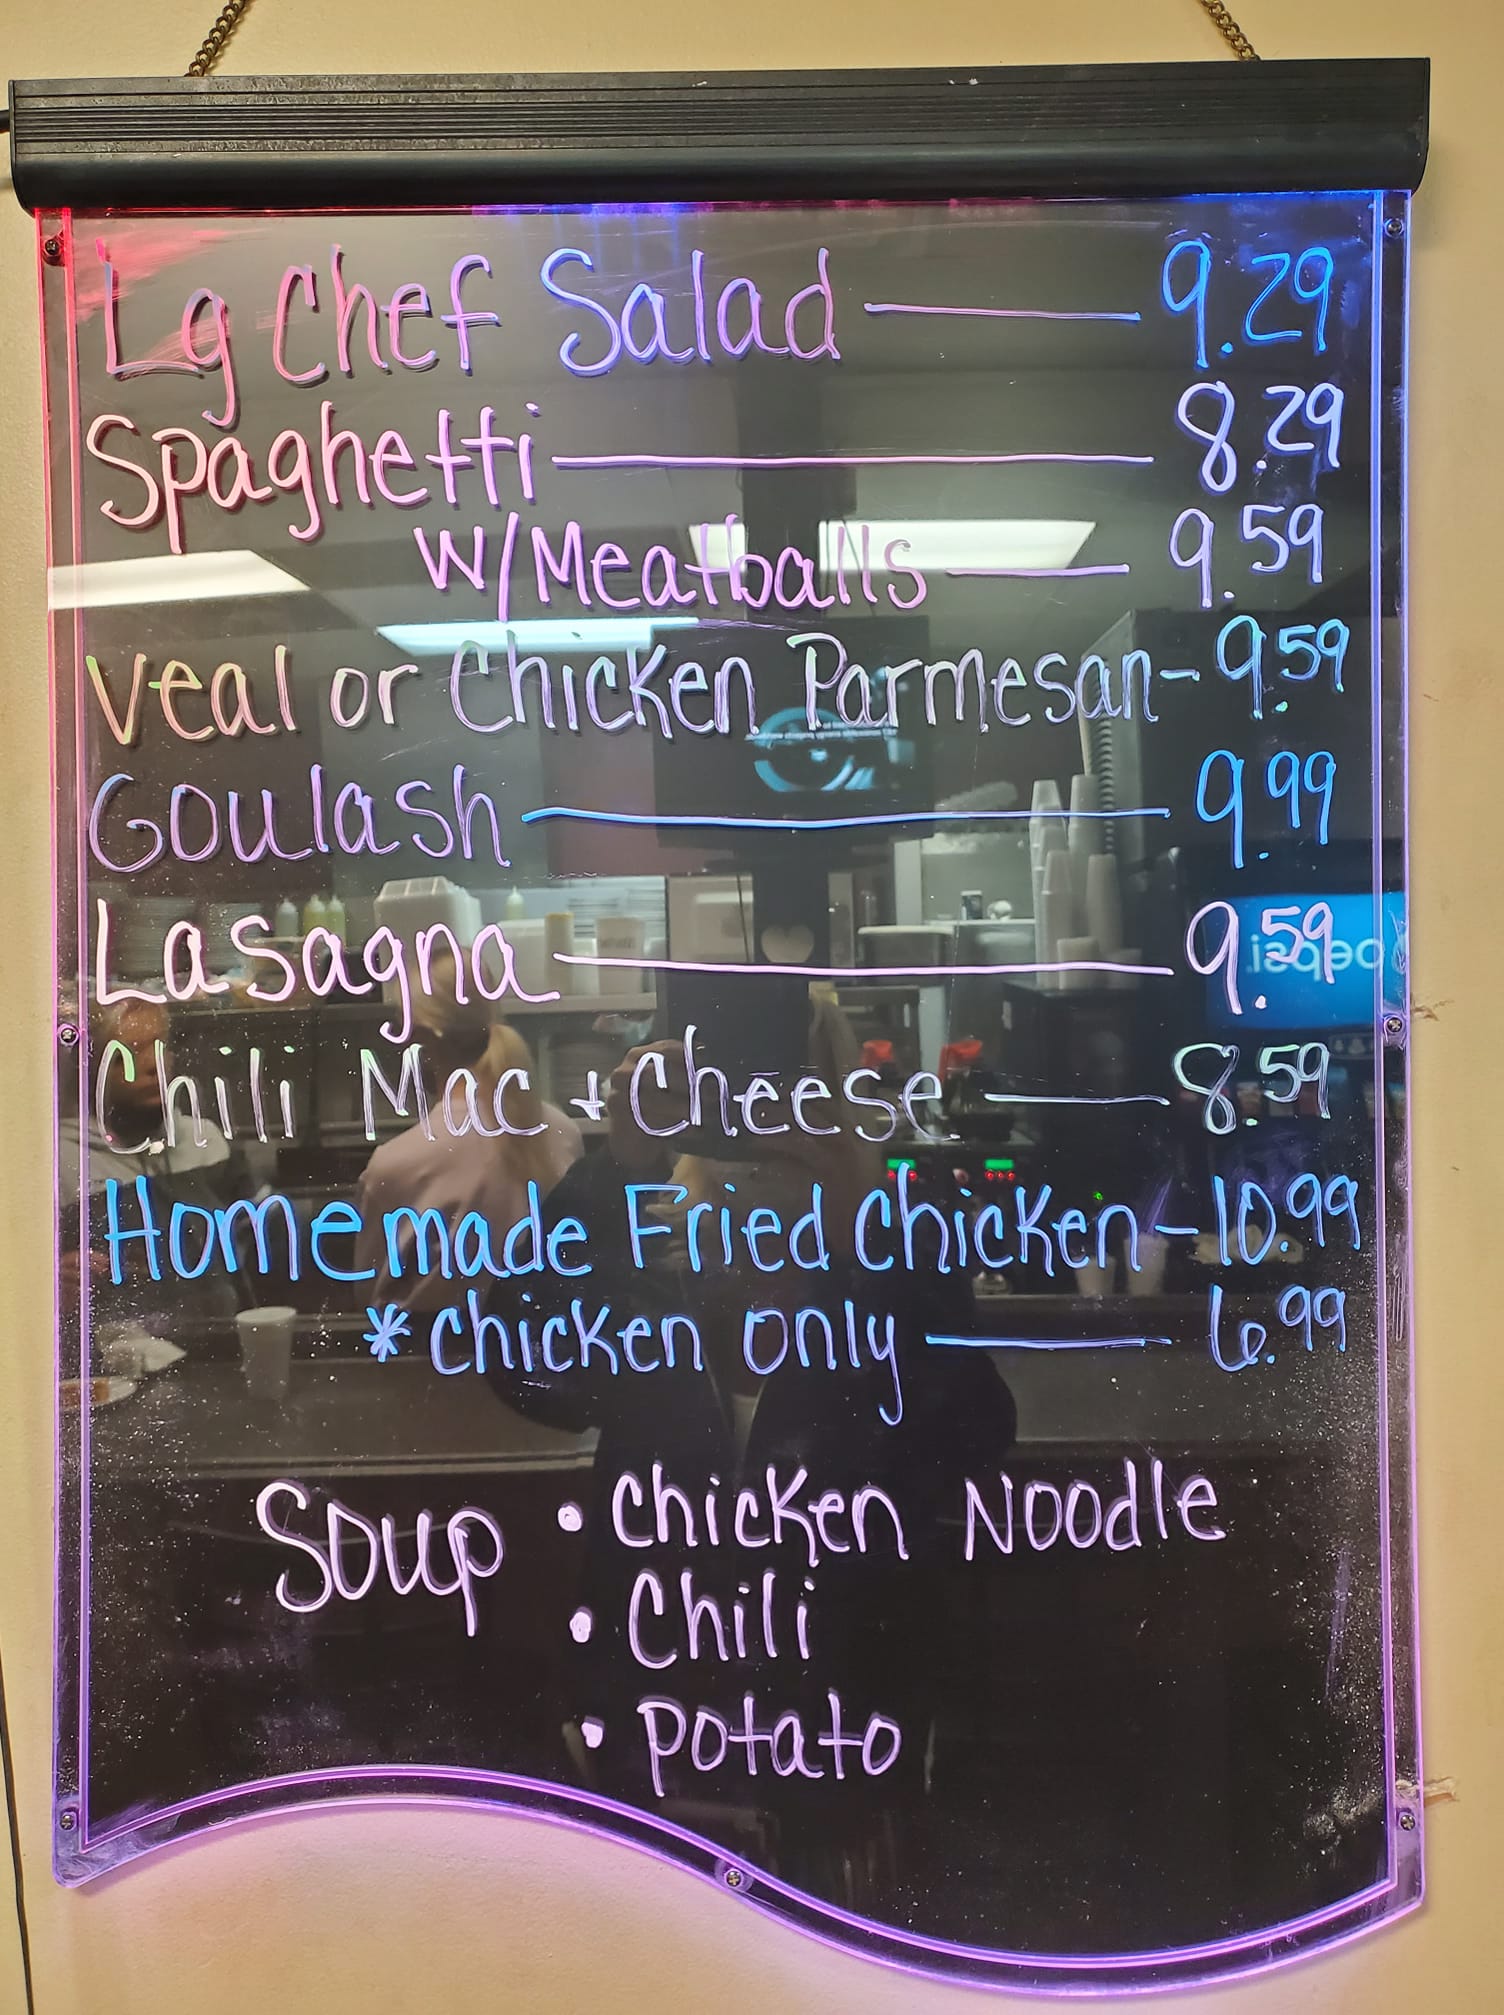 Lg Chef Salad — 9.29
Spaghetti — 8.29
w/Meatballs — 9.59
Veal or Chicken Parmesan - 9.59
Goulash — 9.99
Lasagna — 9.59
Chili Mac + Cheese — 8.59
Homemade Fried Chicken - 10.99
*Chicken only — 6.99
Soup • Chicken Noodle
• Chili
• Potato
pepsi